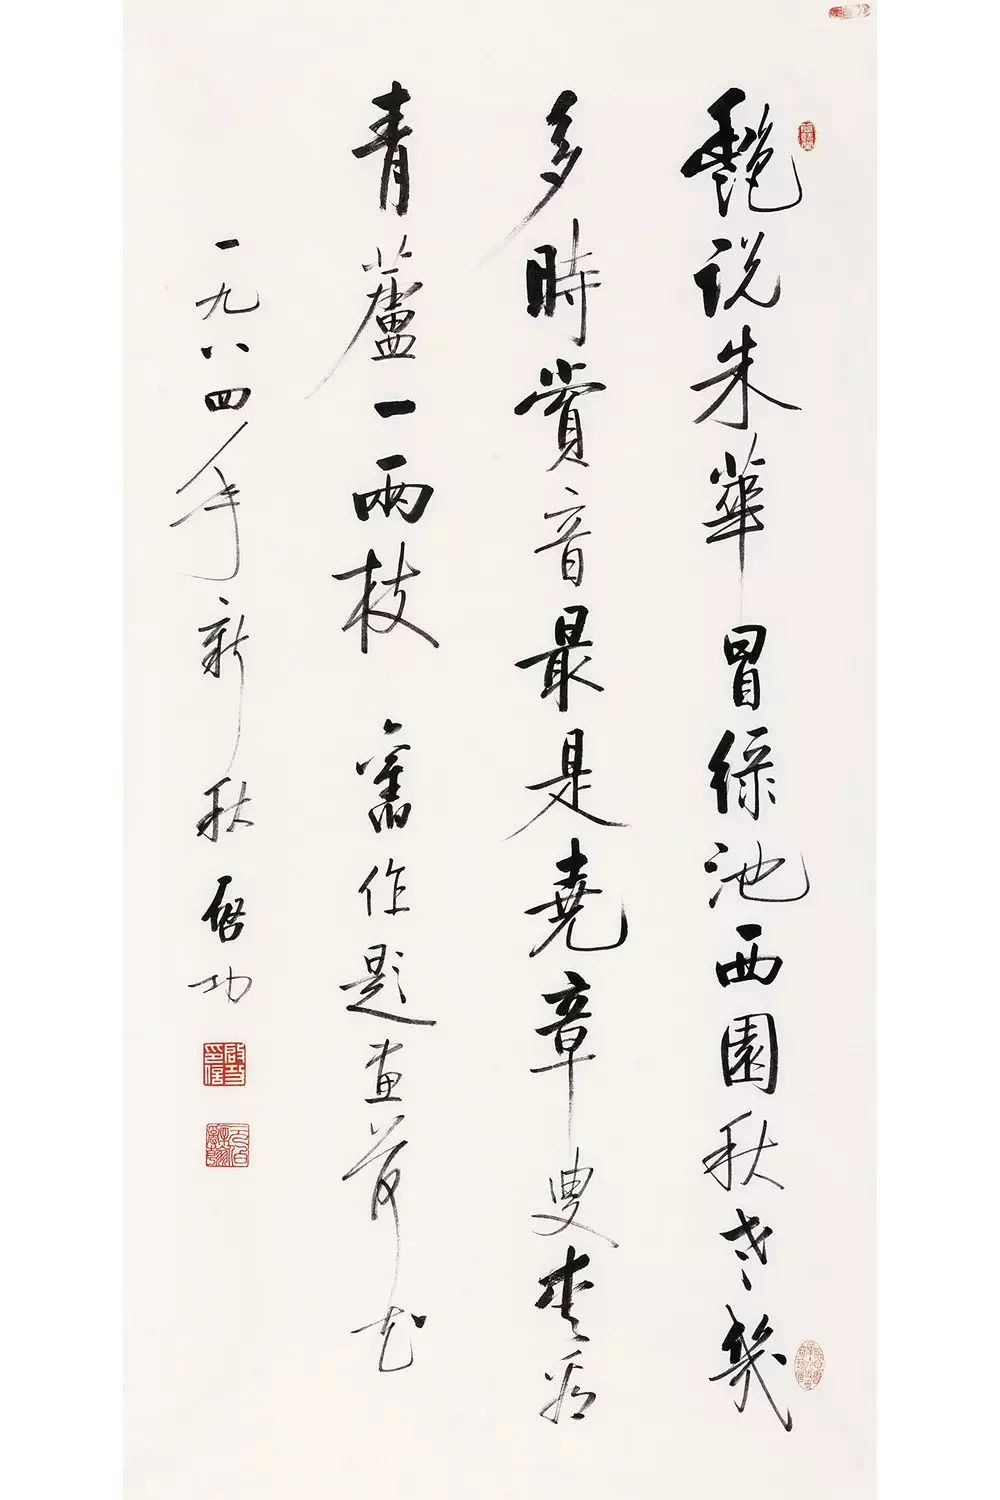 艷说朱華冒綠池西園秋老幾
多時賞音最是堯章叟看
青蘆一兩枝 舊作題畫荷花
一九八四年新秋啓功